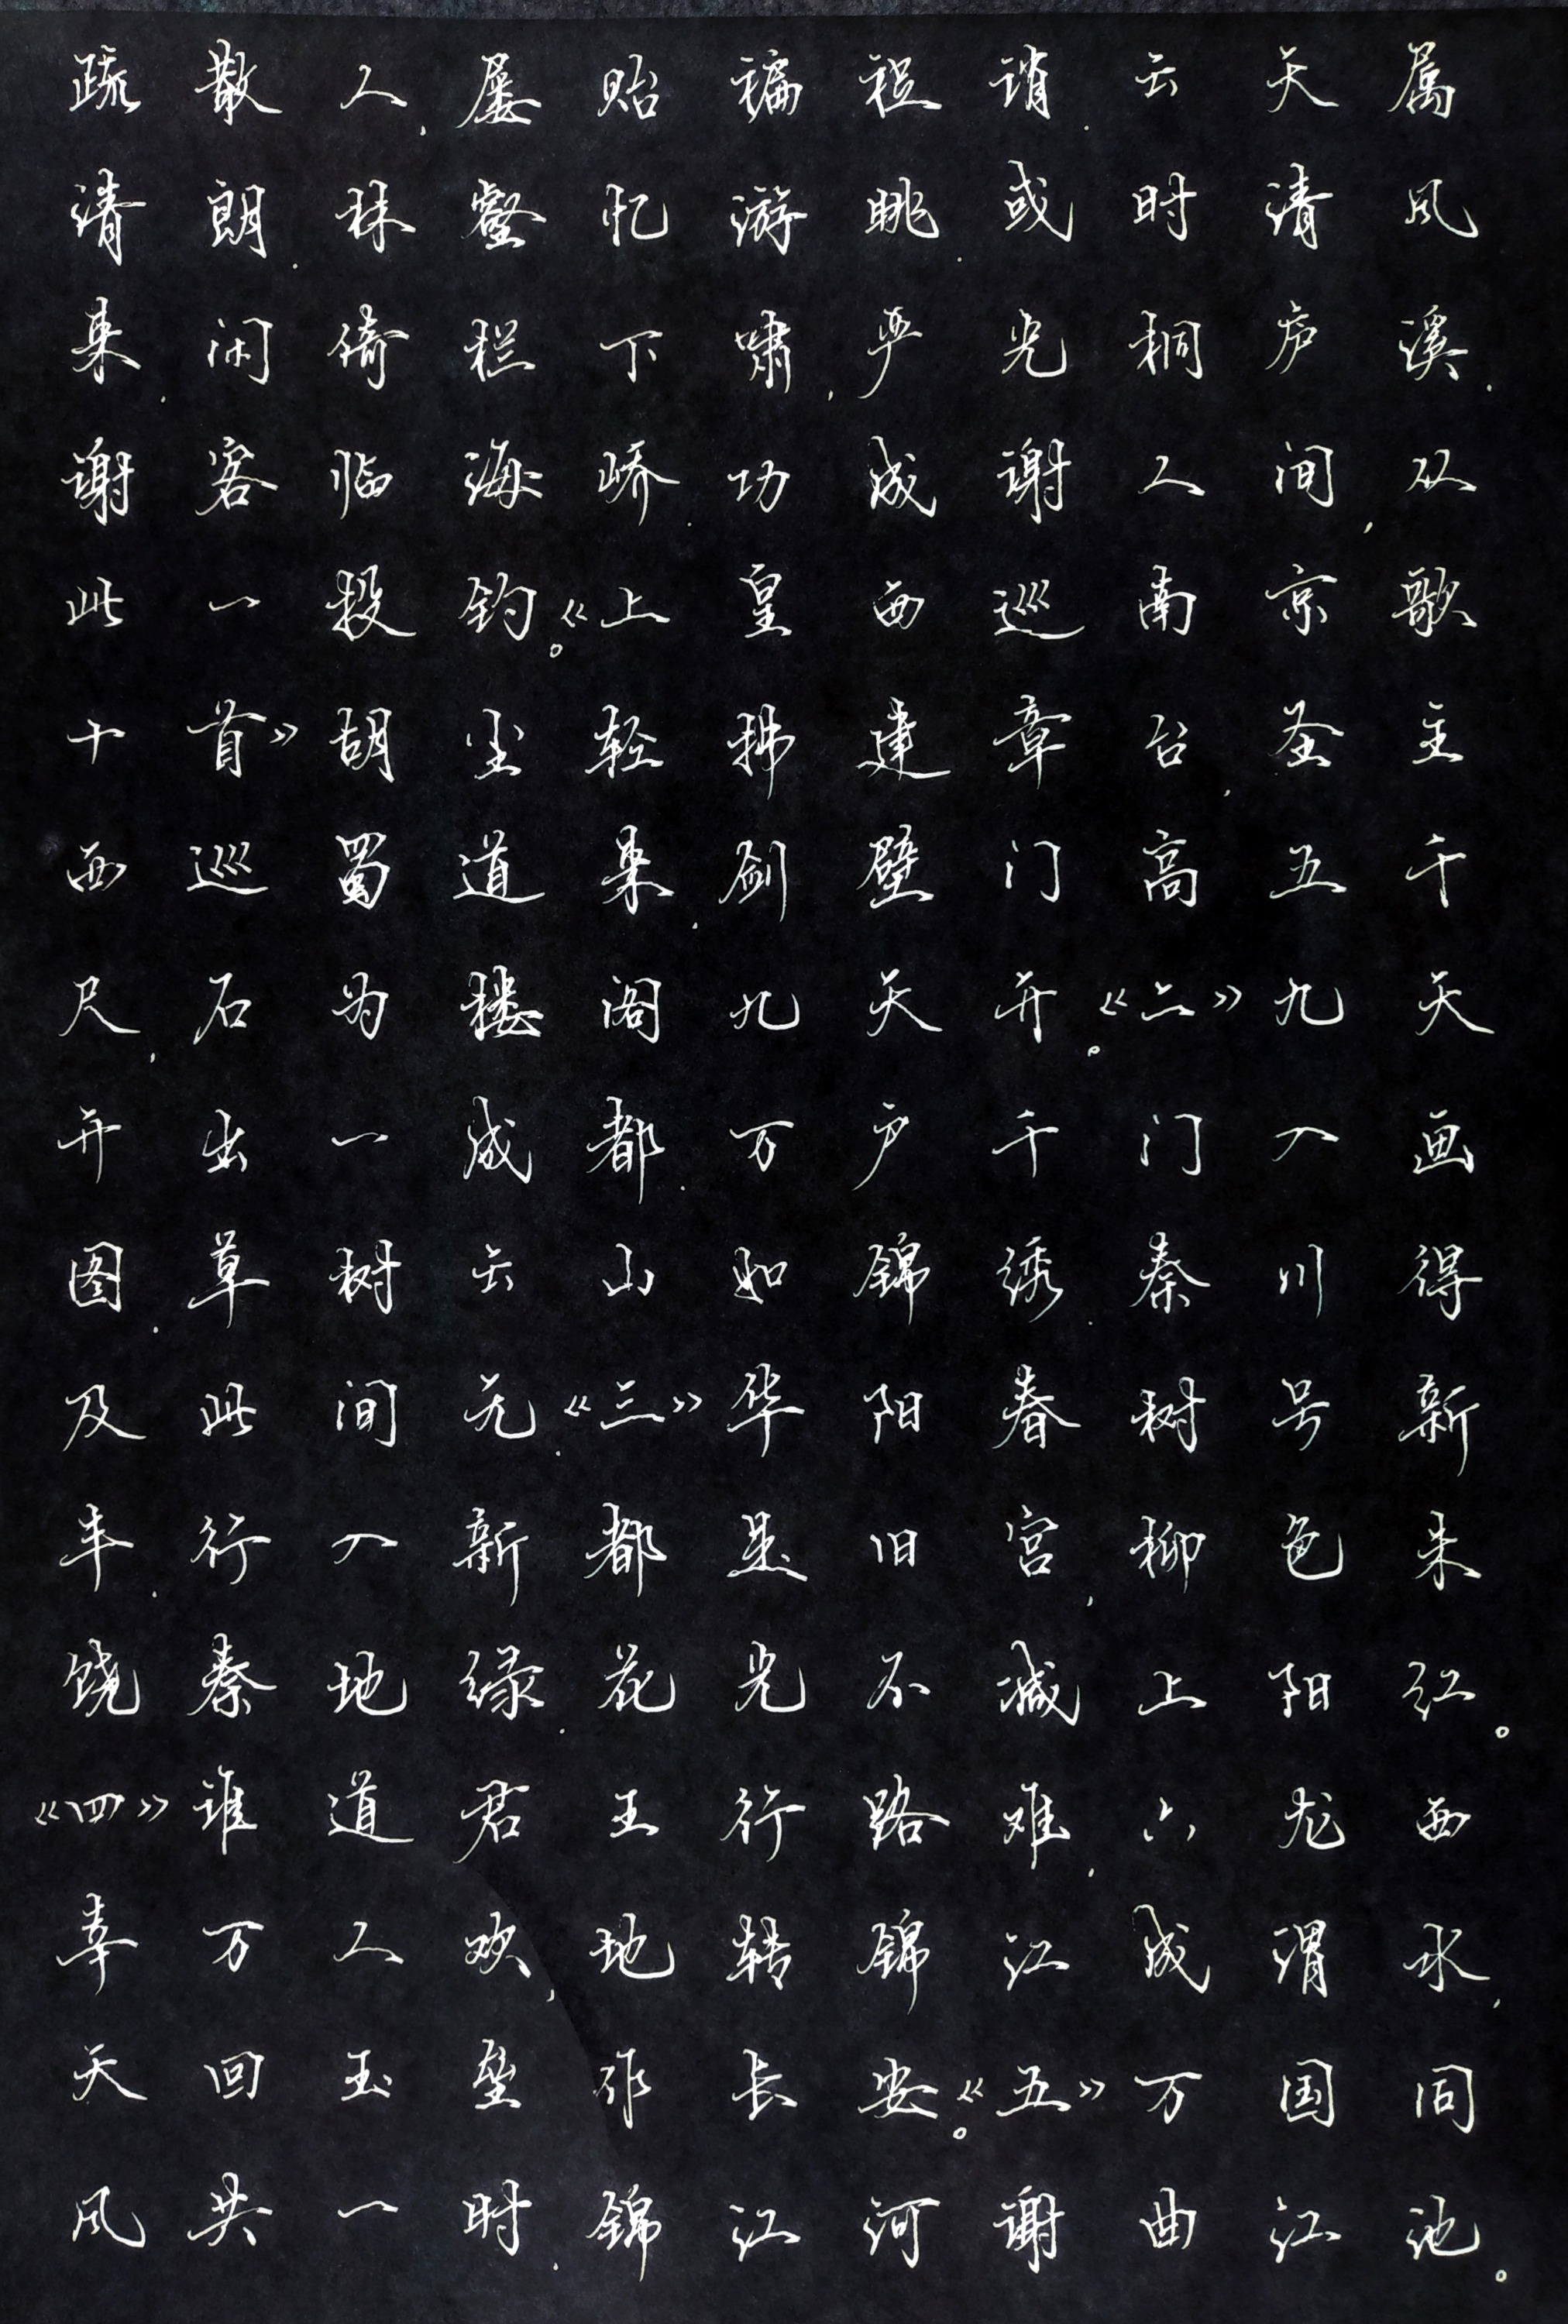 疏散人,屡贻褊促诮.云天属
清朗.林壑忆游眺.或时清风
来,闲倚栏下啸,严光桐庐溪.
谢客临海峤.功成谢人间,从
此一投钓。《上皇西巡南京歌
十首》胡尘轻拂建章台,圣主
西巡蜀道来.剑壁门高五千
尺,石为楼阁九天开。《二》九天
开出一成都.万户千门入画
图.草树云山如锦绣.秦川得
及此间无.《三》华阳春树号新
丰.行入新都是旧宫,柳色未
饶秦地绿.花光不减上阳红。
《四》谁道君王行路难,六龙西
幸万人欢,地转锦江成渭水,
天回玉垒作长安。《五》万国同
风共一时.锦江河谢曲江池。